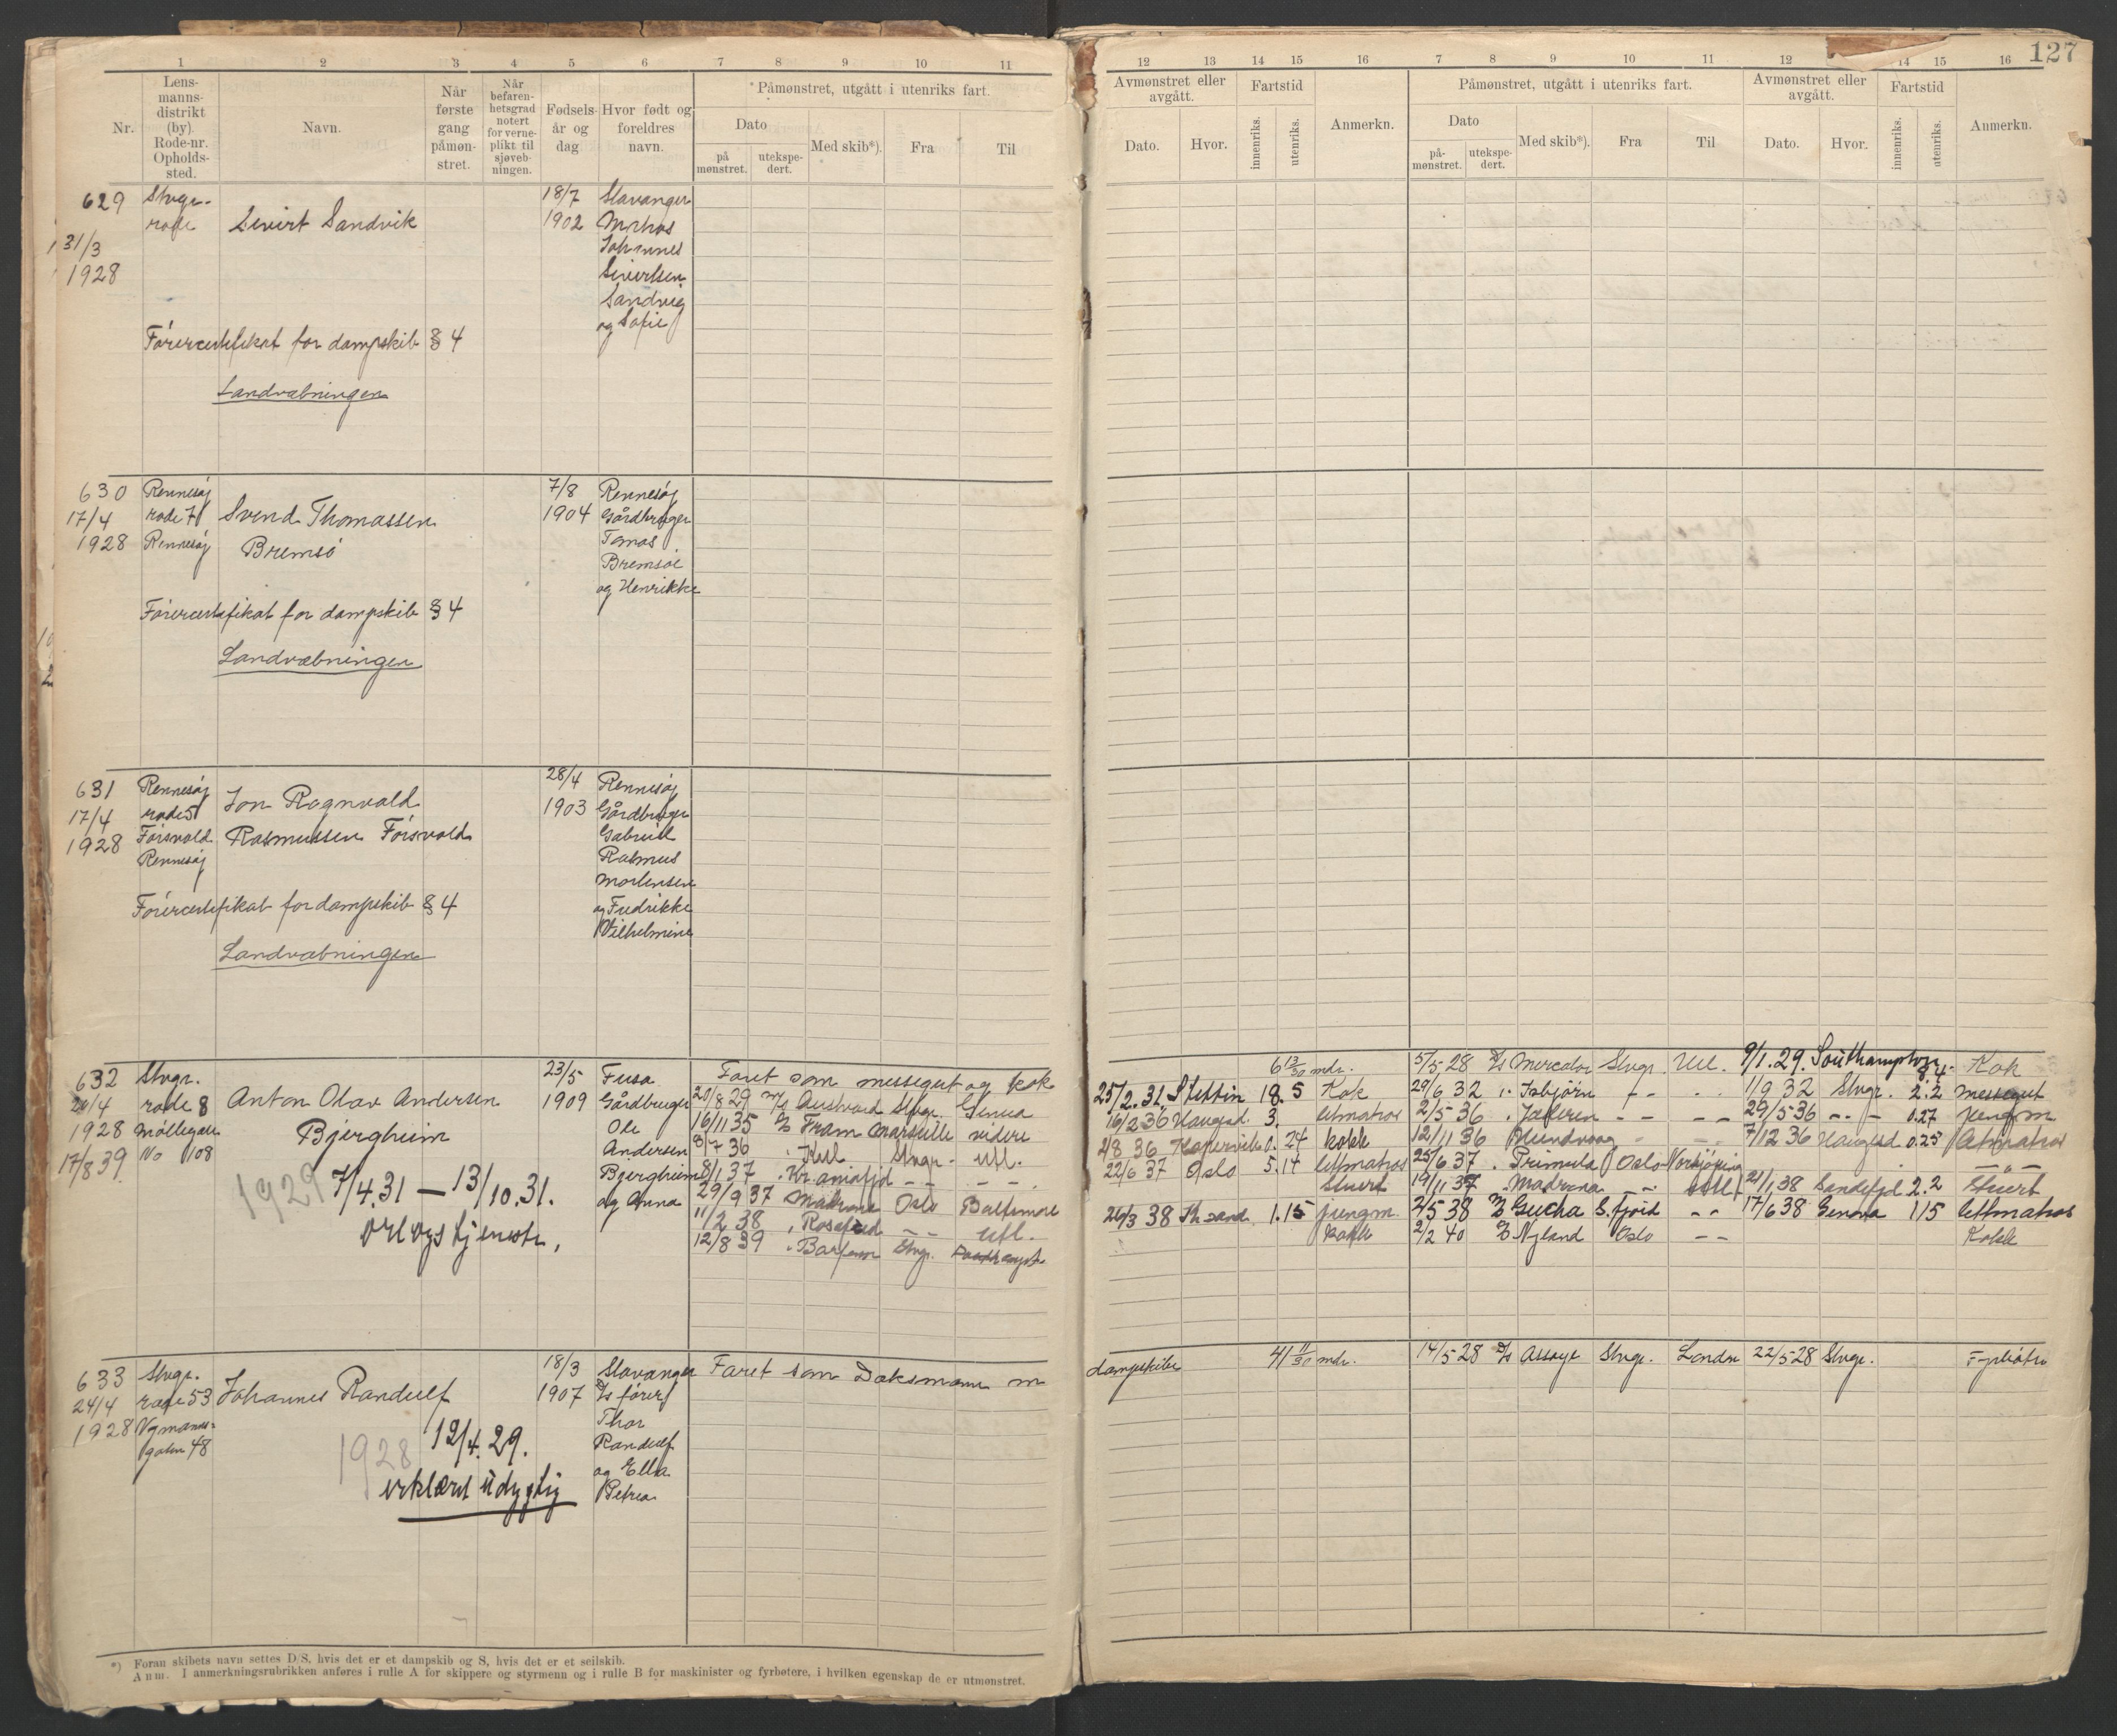 127
1 2 3 4 5 6 7 8 9 10 11
Nr.
Lens-
manns-
distrikt
(by).
Rode-nr.
Opholds-
sted.
Navn.
Når
første
gang
påmøn-
stret.
Når
befaren-
hetsgrad
notert
for verne-
plikt til
sjøveb-
ningen.
Fødsels-
år og
dag
Hvor født og
foreldres
navn.
Påmønstret, utgått i utenriks fart.
Dato
på
mønstret.
utekspe-
dert.
Med skib*).
Fra
Til
12 13 14 15 16 7 8 9 10 11 12 14 15 16
Avmønstret eller
avgått.
Dato.
Hvor.
Fartstid
innenriks.
utenriks.
Anmerkn.
Påmønstret, utgått i utenriks fart.
Dato
på-
mønstret.
utekspe-
dert.
Med skib*).
Fra
Til
Avmønstret eller
avgått.
Dato.
Hvor.
Fartstid
innenriks.
utenriks.
Anmerkn.
629
31/3
1928
Stvgr.
rode
Sivert Sandvik
18/7
1902
Stavanger
Matros
Johannes
Sivertsen
Sandvig
og Sofie
Førercertifikat for dampskib § 4
Landvæbningen
630
17/4
1928
Rennesøy
rode 7
Rennesøy
Svend Thomassen
Bremsø
7/8
1904
Rennesøy
Gårdbruger
Tomas
Bremsøe
og Henrikke
Førercertifikat for dampskib § 4
Landvæbningen
631
17/4
1928
Rennesøy
rode 5
Førsvold
Rennesøy
Jon Ragnvald
Rasmussen Førsvold
28/4
1903
Rennesøy
Gårdbruger
Gabriel
Rasmus
Mortensen
og Fredrikke
Vilhelmine
Førercertifikat for dampskib § 4
Landvæbningen
632
1928
17/8 39.
Stvgr.
rode 8
Møllegaten
No 108
Anton Olav Andersen
Bjergheim
1929 7/4.31 — 13/10.31.
orlogstjeneste.
23/5
1909
Fusa
Gårdbruger
Ole
Andersen
Bjergheim
og Anna
Faret som messegut og kok 6 13/30 mdr.
20/8 29 M/S Austvard Stvgr. Genua 25/2.31 Stettin 18.5 Kok
16/11 35 D/S Fram Marseille videre 16/2 36 Haugsd. 3. lettmatros
8/7 36 Stvgr. utl. 2/8 36 Kopervik 0.24 kokk
8/1 37 Kr.aniafjd – – – – 22/6 37 Oslo 5.14 lettmatros
29/9 37 Madrona Oslo Baltimore Stuert
11/2 38 – – utl. 26/3 38 Kr.sand. 1.15 jungm.
12/8 39 Stvgr. kokk
5/5 28 D/S Mercator Stvgr. Utl. 9/1.29. Southampton 8.4. Kok
29/6 32 Isbjørn – – 1/9 32 Stvgr. 2.2 messegut
2/5 36 Jæderen – – – – 29/5 36 – – 0.27 jungm
12/11 36 Hundvaag 7/12 36 Haugsd. 0.25 letmatros
25/6 37 Primula Oslo Norkjøping – „ –
19/11 37 Madrona – – 21/1 38 Sandefjd 2.2 stuert
2/5 38 Gudha S.fjord – – 17/6 38 Genova 1 15 lettmatros
2/2 40 Nyland Oslo – – Kokk
633
24/4
1928
Stvgr.
rode 53
gaten 48
Johannes Randulf
1928 12/4.29.
erklært udygtig
18/3
1907
Stavanger
D/S fører
Thor
Randulf
og Ella
Petrea
Faret som Dæksmann m dampskibe 41 11/30 mdr.
14/5 28 D/S Assaye Stvgr. London 22/5-28 Stvgr.
*) Foran skibets navn settes D/S, hvis det er et dampskib og S, hvis det er et seilskib.
Anm. I anmerkningsrubrikken anføres i rulle A for skippere og styrmenn og i rulle B for maskinister og fyrbøtere, i hvilken egenskap de er utmønstret.